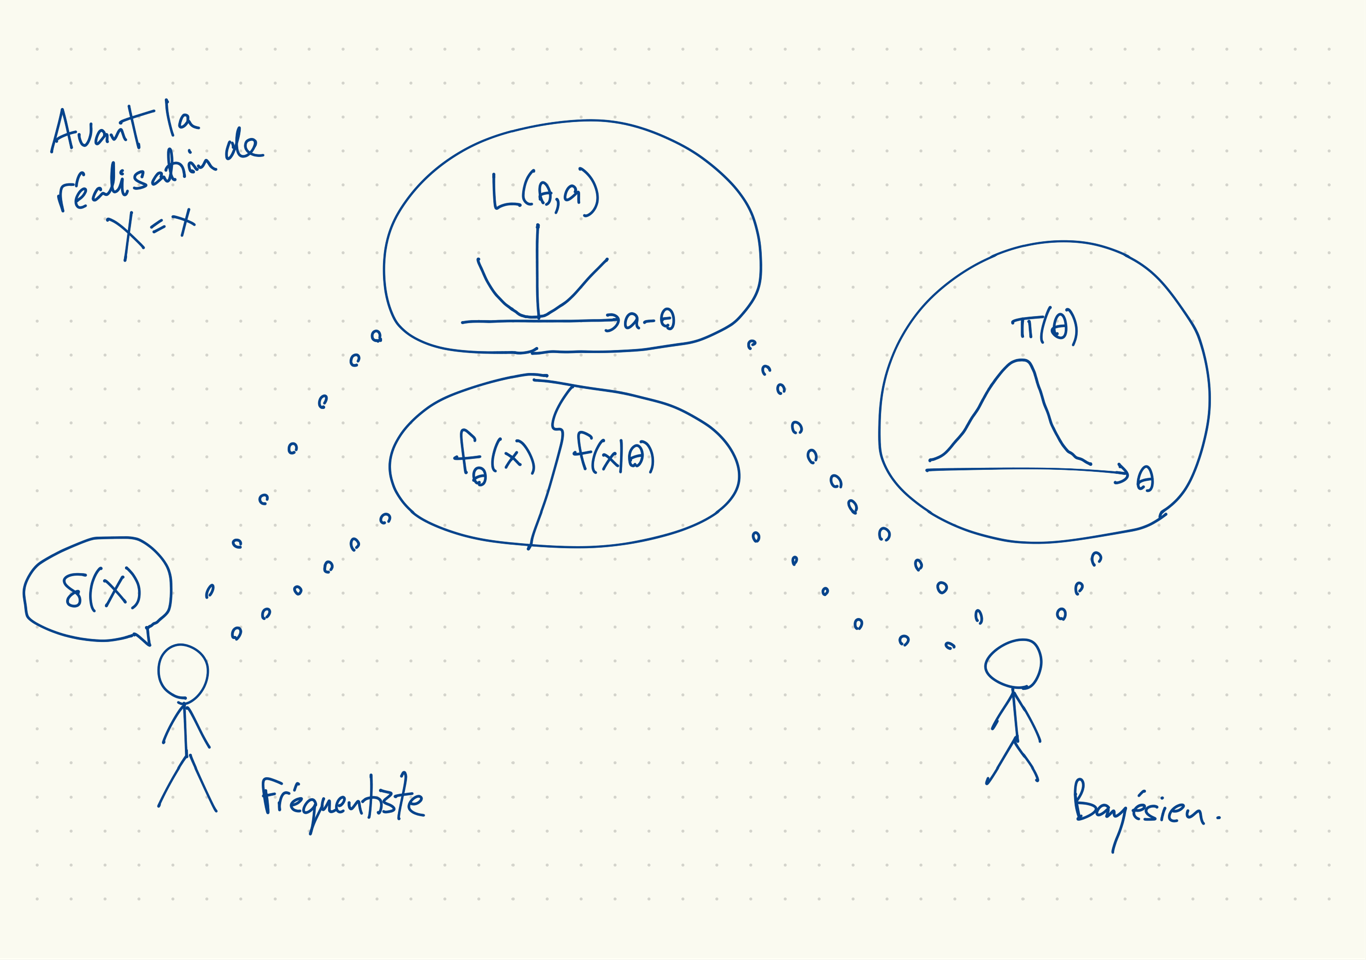 Avant la
réalisation de
X = x
L(θ,a)
a-θ
π(θ)
θ
f_θ(x) f(x|θ)
δ(X)
Fréquentiste
Bayésien.